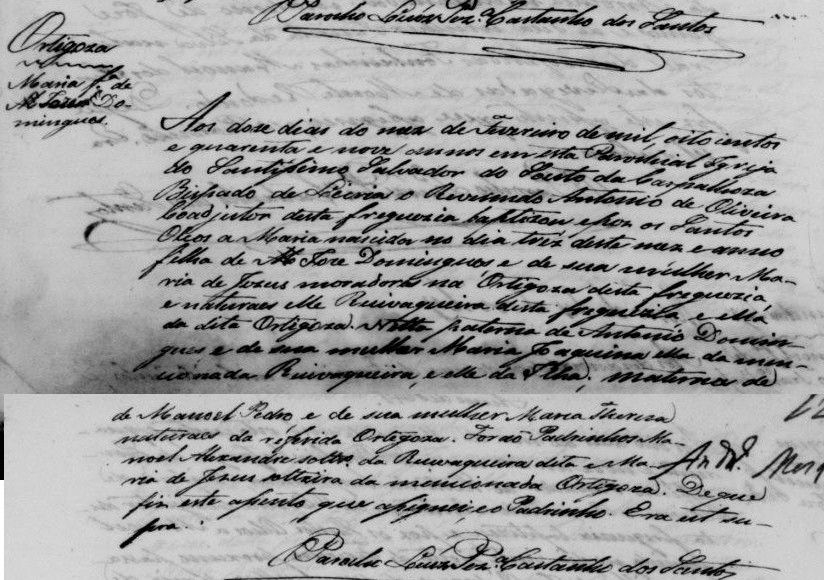 Parocho Luiz Per.ª Castanho dos Santos
Ortigoza
Maria f.ª de
Joze Do-
mingues.
Aos doze dias do mez de Fevereiro de mil, oito centos
e quarenta e nove annos em esta Parochial Igreja
do Santissimo Salvador do Souto da Carpalhoza
Bispado de Leiria o Reverendo Antonio de Oliveira
Coadjutor desta freguezia baptizou e poz os Santos
Oleos a Maria nascida no dia trez deste mez e anno
filha de Joze Domingues e de sua mulher Ma-
ria de Jezus moradores na Ortigoza desta freguezia,
e naturaes elle Ruivaqueira desta freguezia e ella
da dita Ortigoza. Netta paterna de Antonio Domin-
gues e de sua mulher Maria Joaquina ella da men-
cionada Ruivaqueira, e elle da Ilha; materna de
de Manoel Pedro e de sua mulher Maria Thereza
naturaes da referida Ortigoza. Forão Padrinhos Ma-
noel Alexandre soltr.º da Ruivaqueira dita e Ma-
ria de Jezus solteira da mencionada Ortigoza. De que
fiz este assento que assignei, e o Padrinho. Era ut su-
pra.
Parocho Luiz Per.ª Castanho dos Santos